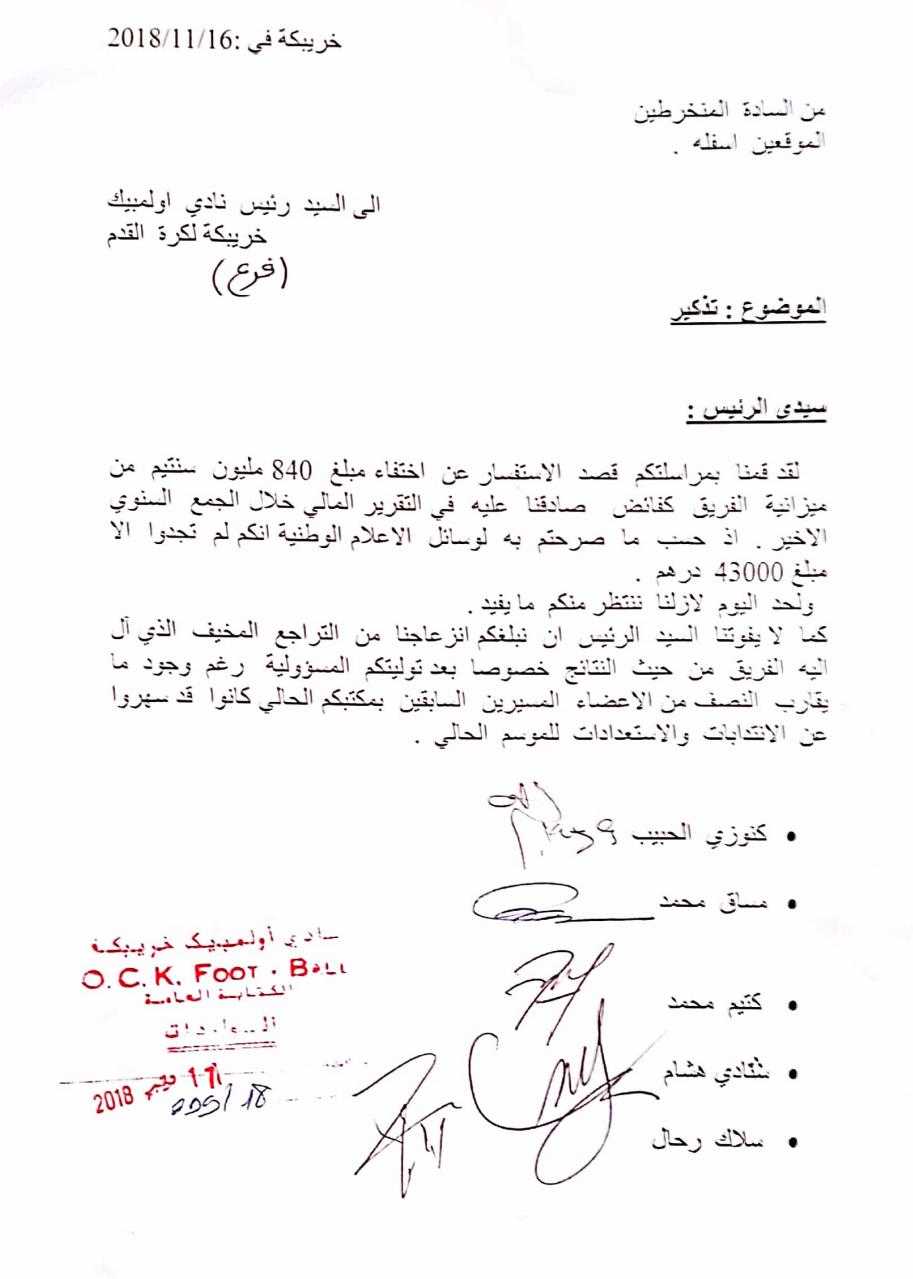 خريبكة في :2018/11/16
من السادة المنخرطين
الموقعين اسفله .
الى السيد رئيس نادي اولمبيك
خريبكة لكرة القدم
(فرع)
الموضوع : تذكير
سيدي الرئيس :
لقد قمنا بمراسلتكم قصد الاستفسار عن اختفاء مبلغ 840 مليون سنتيم من
ميزانية الفريق كفائض صادقنا عليه في التقرير المالي خلال الجمع السنوي
الاخير . اذ حسب ما صرحتم به لوسائل الاعلام الوطنية انكم لم تجدوا الا
مبلغ 43000 درهم .
ولحد اليوم لازلنا ننتظر منكم ما يفيد .
كما لا يفوتنا السيد الرئيس ان نبلغكم انزعاجنا من التراجع المخيف الذي آل
اليه الفريق من حيث النتائج خصوصا بعد توليتكم المسؤولية رغم وجود ما
يقارب النصف من الاعضاء المسيرين السابقين بمكتبكم الحالي كانوا قد سهروا
عن الانتدابات والاستعدادات للموسم الحالي .
• كنوزي الحبيب
• مساق محمد
• كتيم محمد
• شنادي هشام
• سلاك رحال
نادي أولمبيك خريبكة
O.C.K. FOOT . BALL
الكتابة العامة
الـواردات
2018